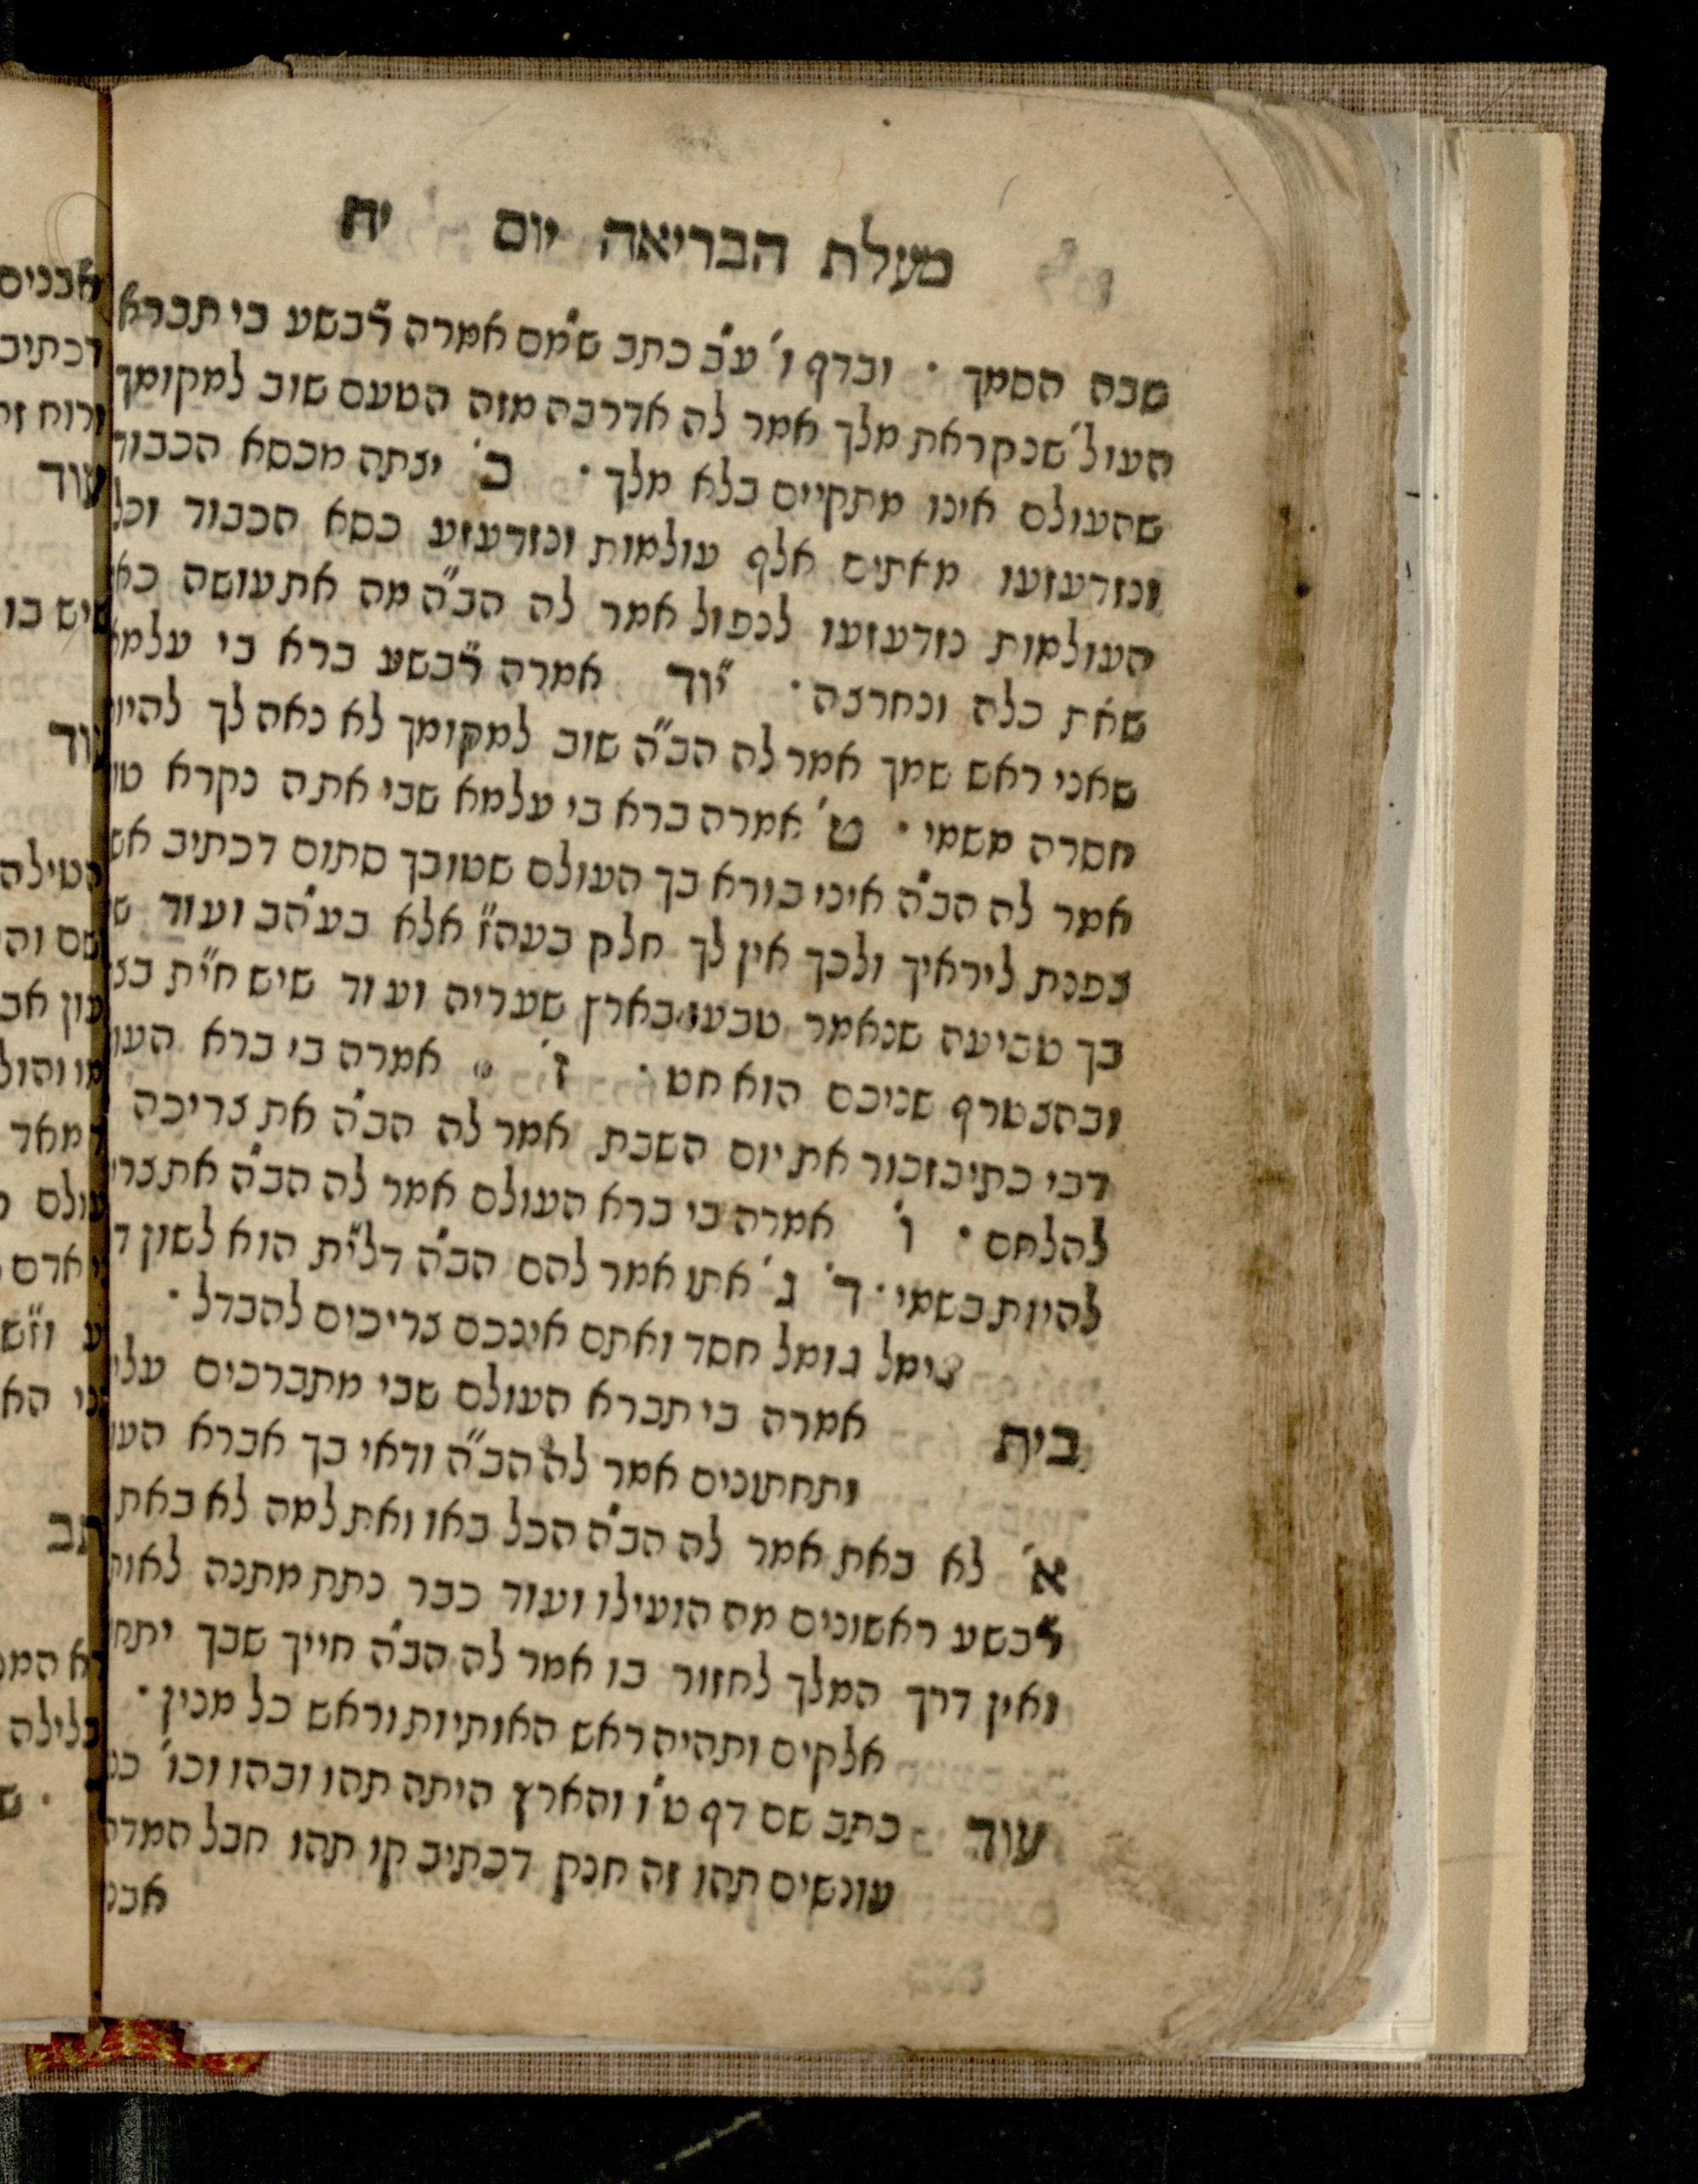 מעלת הבריאה יום יח
שבה הסמך · ובדף ו' ע"ב כתב ש"מם אמרה רבש"ע בי תברא
העול' שנקראת מלך אמר לה אדרבה מזה הטעם שוב למקומך
שהעולם אינו מתקיים בלא מלך · כ' יצתה מכסא הכבוד
ונזדעזעו מאתים אלף עולמות ונזדעזע כסא הכבוד וכל
העולמות נזדעזעו לנפול אמר לה הב"ה מה את עושה כא
שאת כלה ונחרצה · יו"ד אמרה רבש"ע ברא בי עלמא
שאני ראש שמך אמר לה הב"ה שוב למקומך לא נאה לך להיו
חסרה משמי · ט' אמרה ברא בי עלמא שבי אתה נקרא טו
אמר לה הב"ה איני בורא בך העולם שטובך סתום דכתיב אש
צפנת ליראיך ולכך אין לך חלק בעה"ז אלא בע"הב ועוד ש
בך טביעה שנאמר טבעו בארץ שעריה ועוד שיש חי"ת בצ
ובהצטרף שניכם הוא חט · ז' אמרה בי ברא העו
דבי כתיב זכור את יום השבת אמר לה הב"ה את צריכה
להלחם · ו' אמרה בי ברא העולם אמר לה הב"ה את צרי
להיות בשמי · ד' ג' אתו אמר להם הב"ה דלי"ת הוא לשון ד
גימל גומל חסד ואתם אינכם צריכים להבדל ·
בית אמרה בי תברא העולם שבי מתברכים עלי
ותחתונים אמר לה הב"ה ודאי בך אברא העו
א' לא באת אמר לה הב"ה הכל באו ואת למה לא באת
רבש"ע ראשונים מה הועילו ועוד כבר נתת מתנה לאות
ואין דרך המלך לחזור בו אמר לה הב"ה חייך שבך יתח
אלקים ותהיה ראש האותיות וראש כל מנין ·
עוד כתב שם דף ט"ו והארץ היתה תהו ובהו וכו' כנ
עונשים תהו זה חנק דכתיב קו תהו חבל המדה
אבנ
אבנים
דכתיב
ורוח זה
עוד
שיש בו
עוד
הטילה
שם והי
עון אב
מו והול
מאד
עולם
אדם
ע וז"ש
כי הא
כתב
בלילה